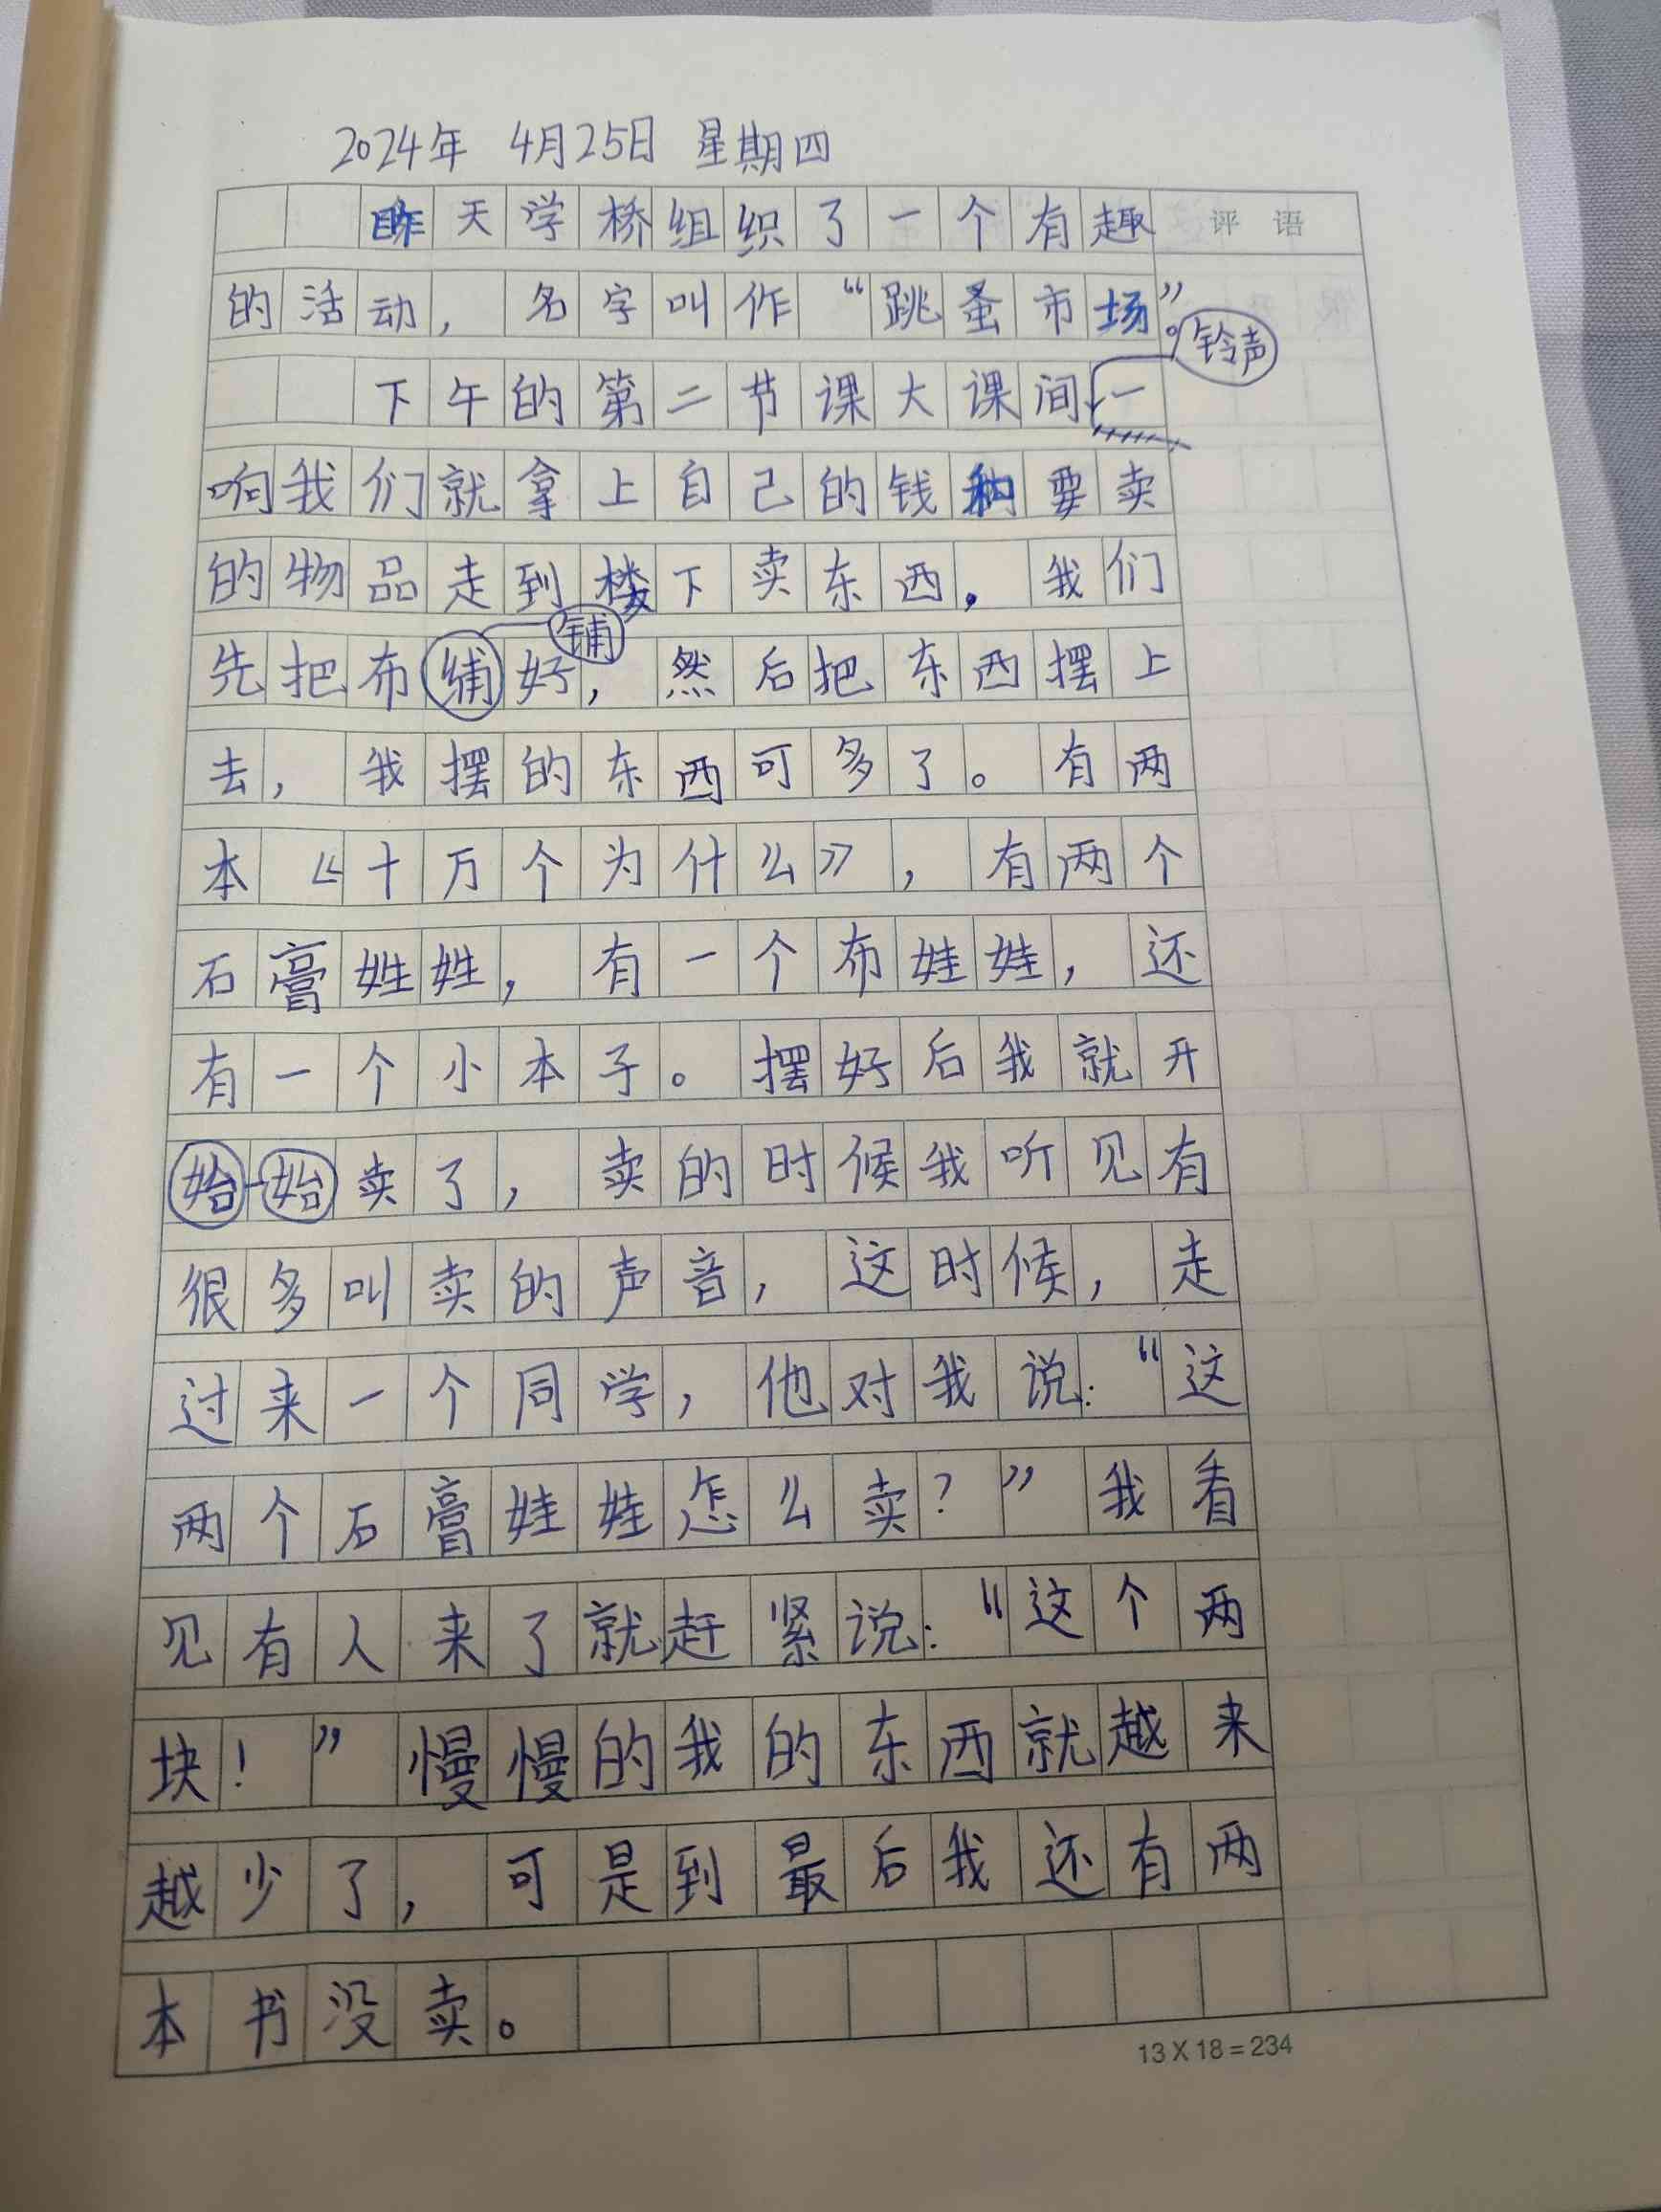 2024年 4月25日 星期四
昨天学桥组织了一个有趣
评语
的活动，名字叫作“跳蚤市场”。
铃声
下午的第二节课大课间一
响我们就拿上自己的钱和要卖
的物品走到楼下卖东西。我们
铺
先把布铺好，然后把东西摆上
去，我摆的东西可多了。有两
本《十万个为什么》，有两个
石膏姓姓，有一个布娃娃，还
有一个小本子。摆好后我就开
始始卖了，卖的时候我听见有
很多叫卖的声音，这时候，走
过来一个同学，他对我说：“这
两个石膏娃娃怎么卖？”我看
见有人来了就赶紧说：“这个两
块！”慢慢的我的东西就越来
越少了，可是到最后我还有两
本书没卖。
13X18=234